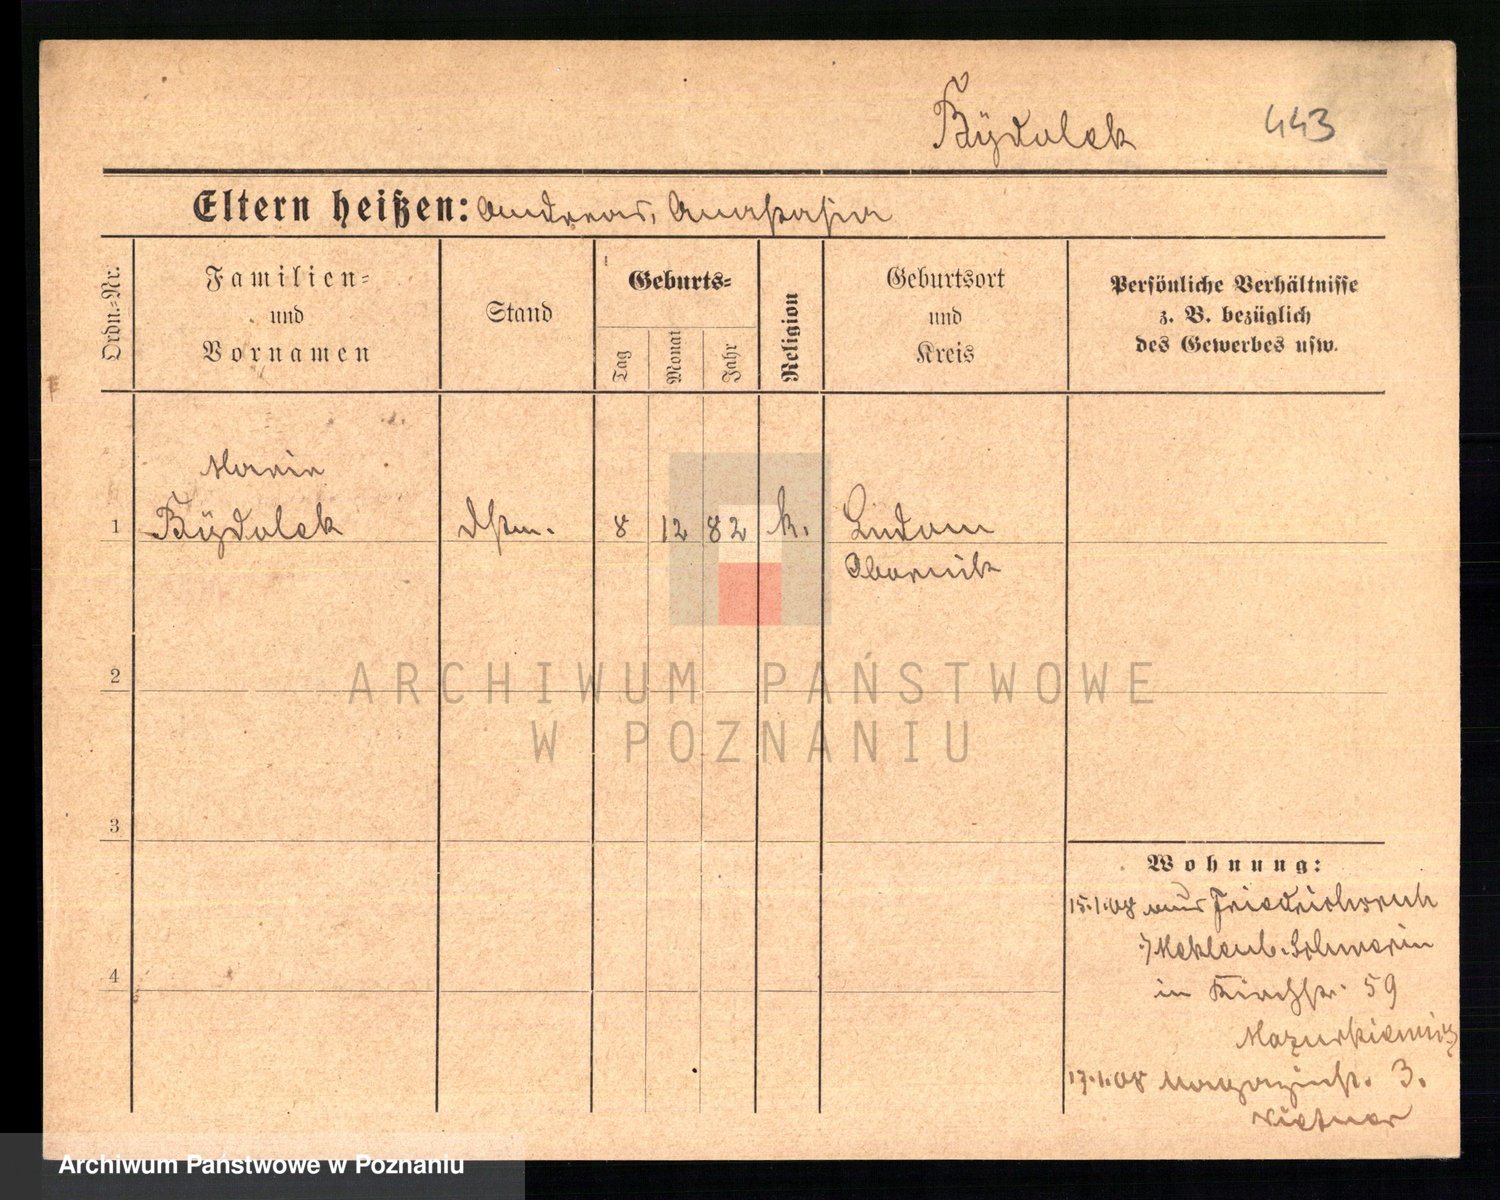 Bÿdolek 443
Eltern heißen: Andreas, Anastasia
Ordn.-Nr.
Familien-
und
Vornamen
Stand
Geburts-
Tag
Monat
Jahr
Religion
Geburtsort
und
Kreis
Persönliche Verhältnisse
z. B. bezüglich
des Gewerbes usw.
Marie
1 Bÿdolek Dstm. 8 12 82 k. Ludom
Obornik
2
ARCHIWUM PAŃSTWOWE
W POZNANIU
3
Wohnung:
15.1.08 aus Friedrichsruh
i/Meklenb. Schwerin
4
in Kirchstr. 59
Mazurkiewicz
17.1.08 Magazinstr. 3.
Archiwum Państwowe w Poznaniu